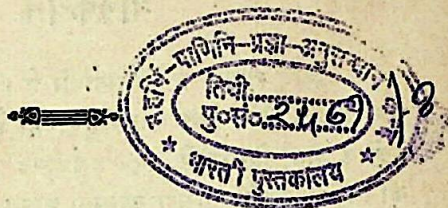 महर्षि-पाणिनि-प्रज्ञा-अनुसन्धान
तिथी..............
पु०सं०..2469
* भारती पुस्तकालय *